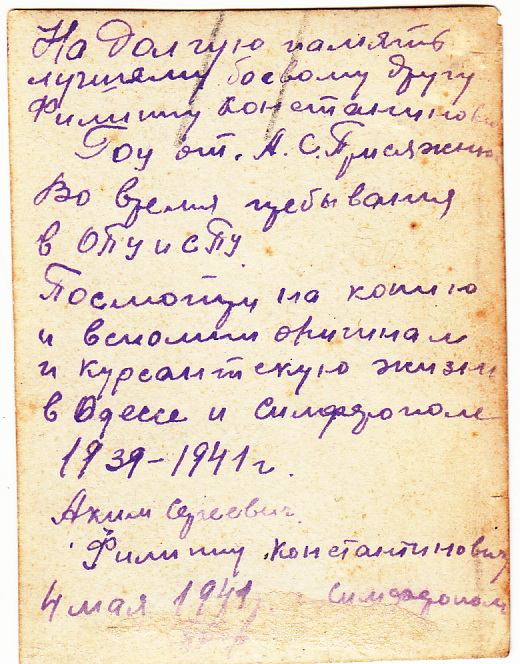 На долгую память
лучшему боевому другу
Филиппу Константинови
Гоу от. А.С. Присяжнюк
Во время пребывания
в ОПУ и СПУ
Посмотри на копию
и вспомни оригинал
и курсантскую жизнь
в Одессе и Симферополе
1939-1941 г.
Аким Сергеевич
Филиппу Константинович
4 мая 1941 г. Симферополь